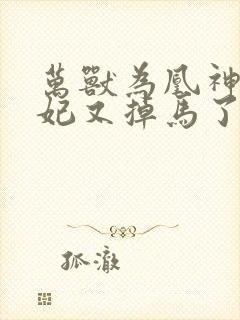 萬獸為凰神
妃又掉馬了
孤澈